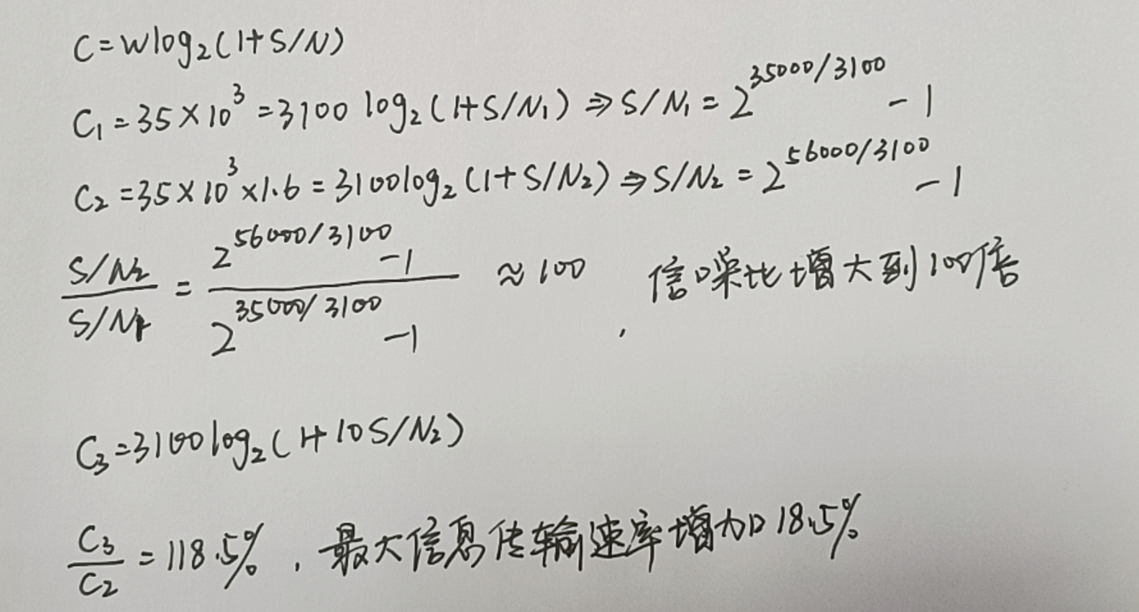 C=Wlog₂(1+S/N)
C₁=35×10³=3100 log₂(1+S/N₁)⇒S/N₁=2^35000/3100 -1
C₂=35×10³×1.6=3100log₂(1+S/N₂)⇒S/N₂=2^56000/3100 -1
S/N₂ / S/N₁ = 2^56000/3100 -1 / 2^35000/3100 -1 ≈100 , 信噪比增大到100倍
C₃=3100log₂(1+10S/N₂)
C₃/C₂=118.5%, 最大信息传输速率增加18.5%